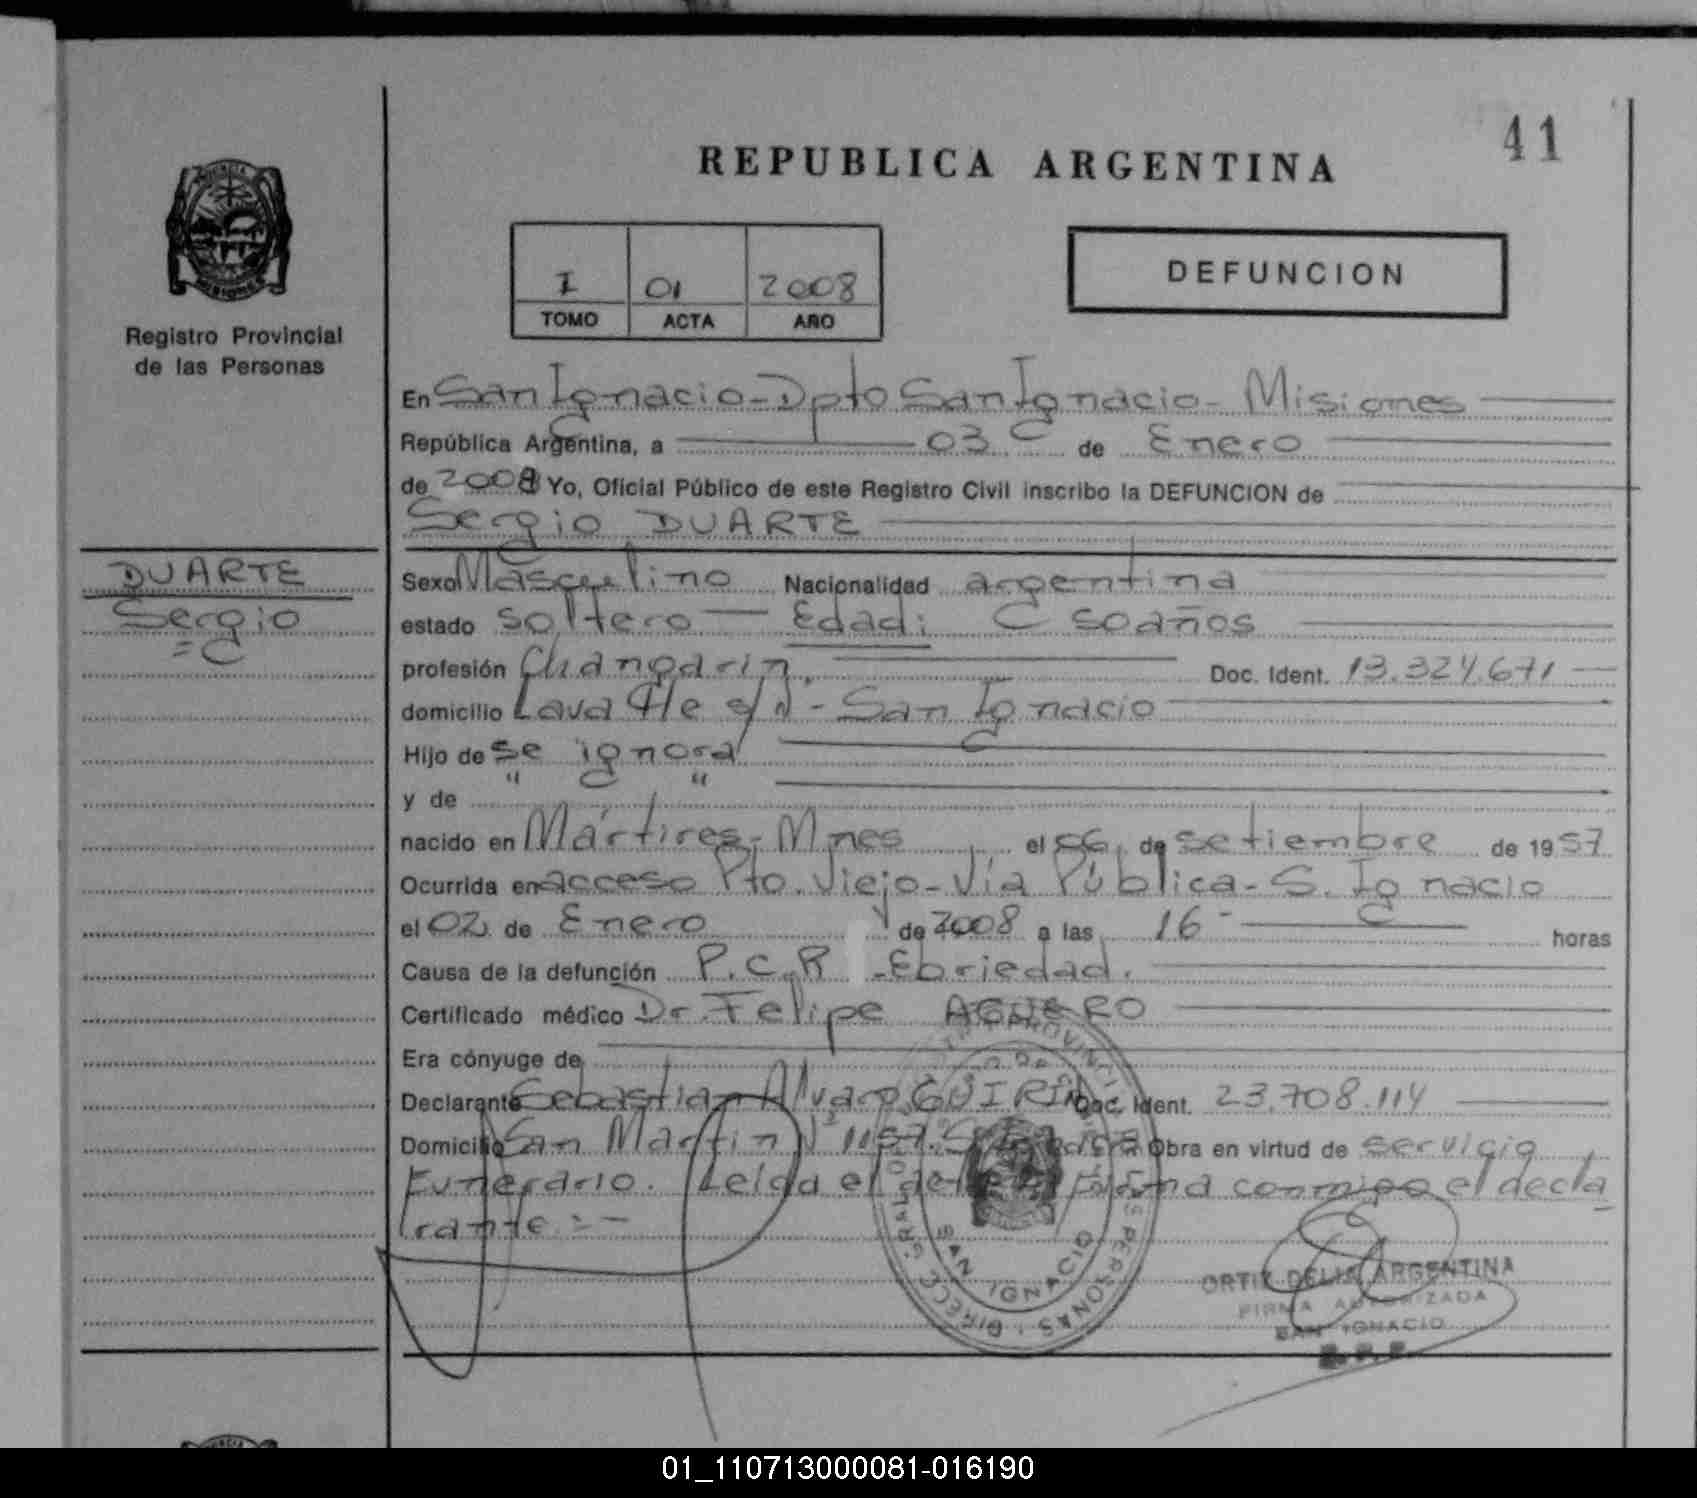 41
REPUBLICA ARGENTINA
I 01 2008
TOMO ACTA AÑO
DEFUNCION
MISIONES
Registro Provincial
de las Personas
En San Ignacio - Dpto San Ignacio - Misiones
República Argentina, a 03 de Enero
de 2008 Yo, Oficial Público de este Registro Civil inscribo la DEFUNCION de
Sergio DUARTE
DUARTE
Sergio
Sexo Masculino Nacionalidad argentina
estado soltero - Edad: 50 años
profesión Changarin. Doc. Ident. 13.324.671
domicilio Lavalle s/N - San Ignacio
Hijo de se ignora
y de " "
nacido en Mártires - Mnes el 06 de setiembre de 1957
Ocurrida en acceso Pto. Viejo - Vía Pública - S. Ignacio
el 02 de Enero de 2008 a las 16 - horas
Causa de la defunción P.C.R - Ebriedad.
Certificado médico Dr. Felipe AGUERO
Era cónyuge de
Declarante Sebastian Alvaro GUIRIN Doc. Ident. 23.708.114
Domicilio San Martin Nº 1157. S. Ignacio Obra en virtud de servicio
Funerario. Leida el acta firma conmigo el decla
rante. = -
SAN IGNACIO
ORTIZ DELIA ARGENTINA
FIRMA AUTORIZADA
SAN IGNACIO
01_110713000081-016190